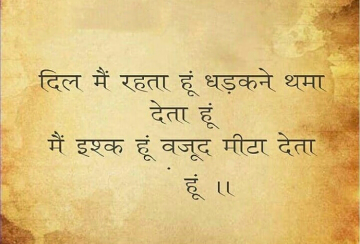 दिल मैं रहता हूं धड़कने थमा
देता हूं
मैं इश्क हूं वजूद मीटा देता
हूं ।।